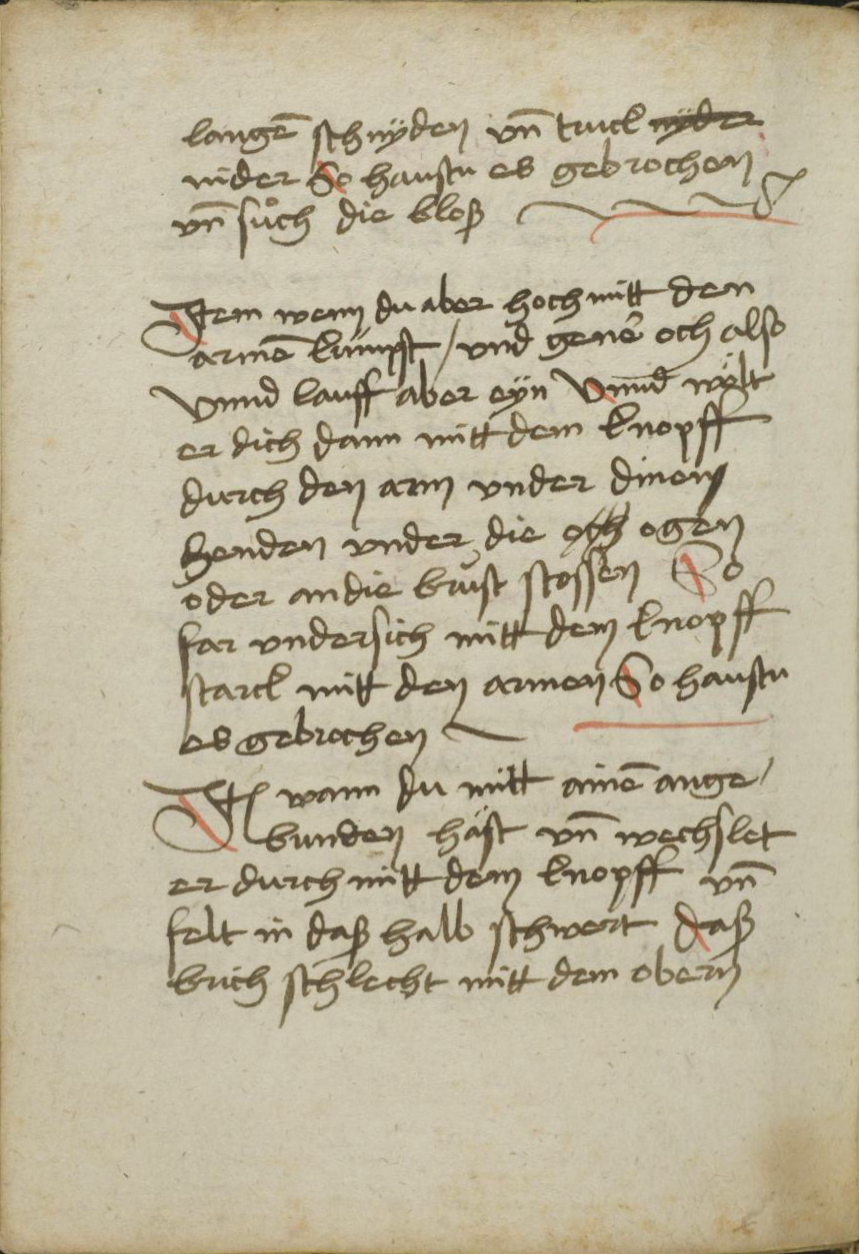 langen̄ schnÿden vn̄ truck nÿder
nider So haustu es gebrochen
vn̄ sůch die bloß
Item wenn du aber hoch mitt den
armē kumpst / vnd genē och also
Vnnd lauff aber eÿn Vnnd wölt
er dich dann mitt dem knopff
durch den arm vnder dinen
henden vnder die och ogen
oder an die brust stossen So
far vndersich mitt dem knopff
starck mitt den armen So haustu
es gebrochen
Itē wann du mitt ainē ange/
bunden häst vn̄ wechslet
er durch mitt dem knopff vn̄
felt in daß halb schwert daß
brich schlecht mitt dem obern